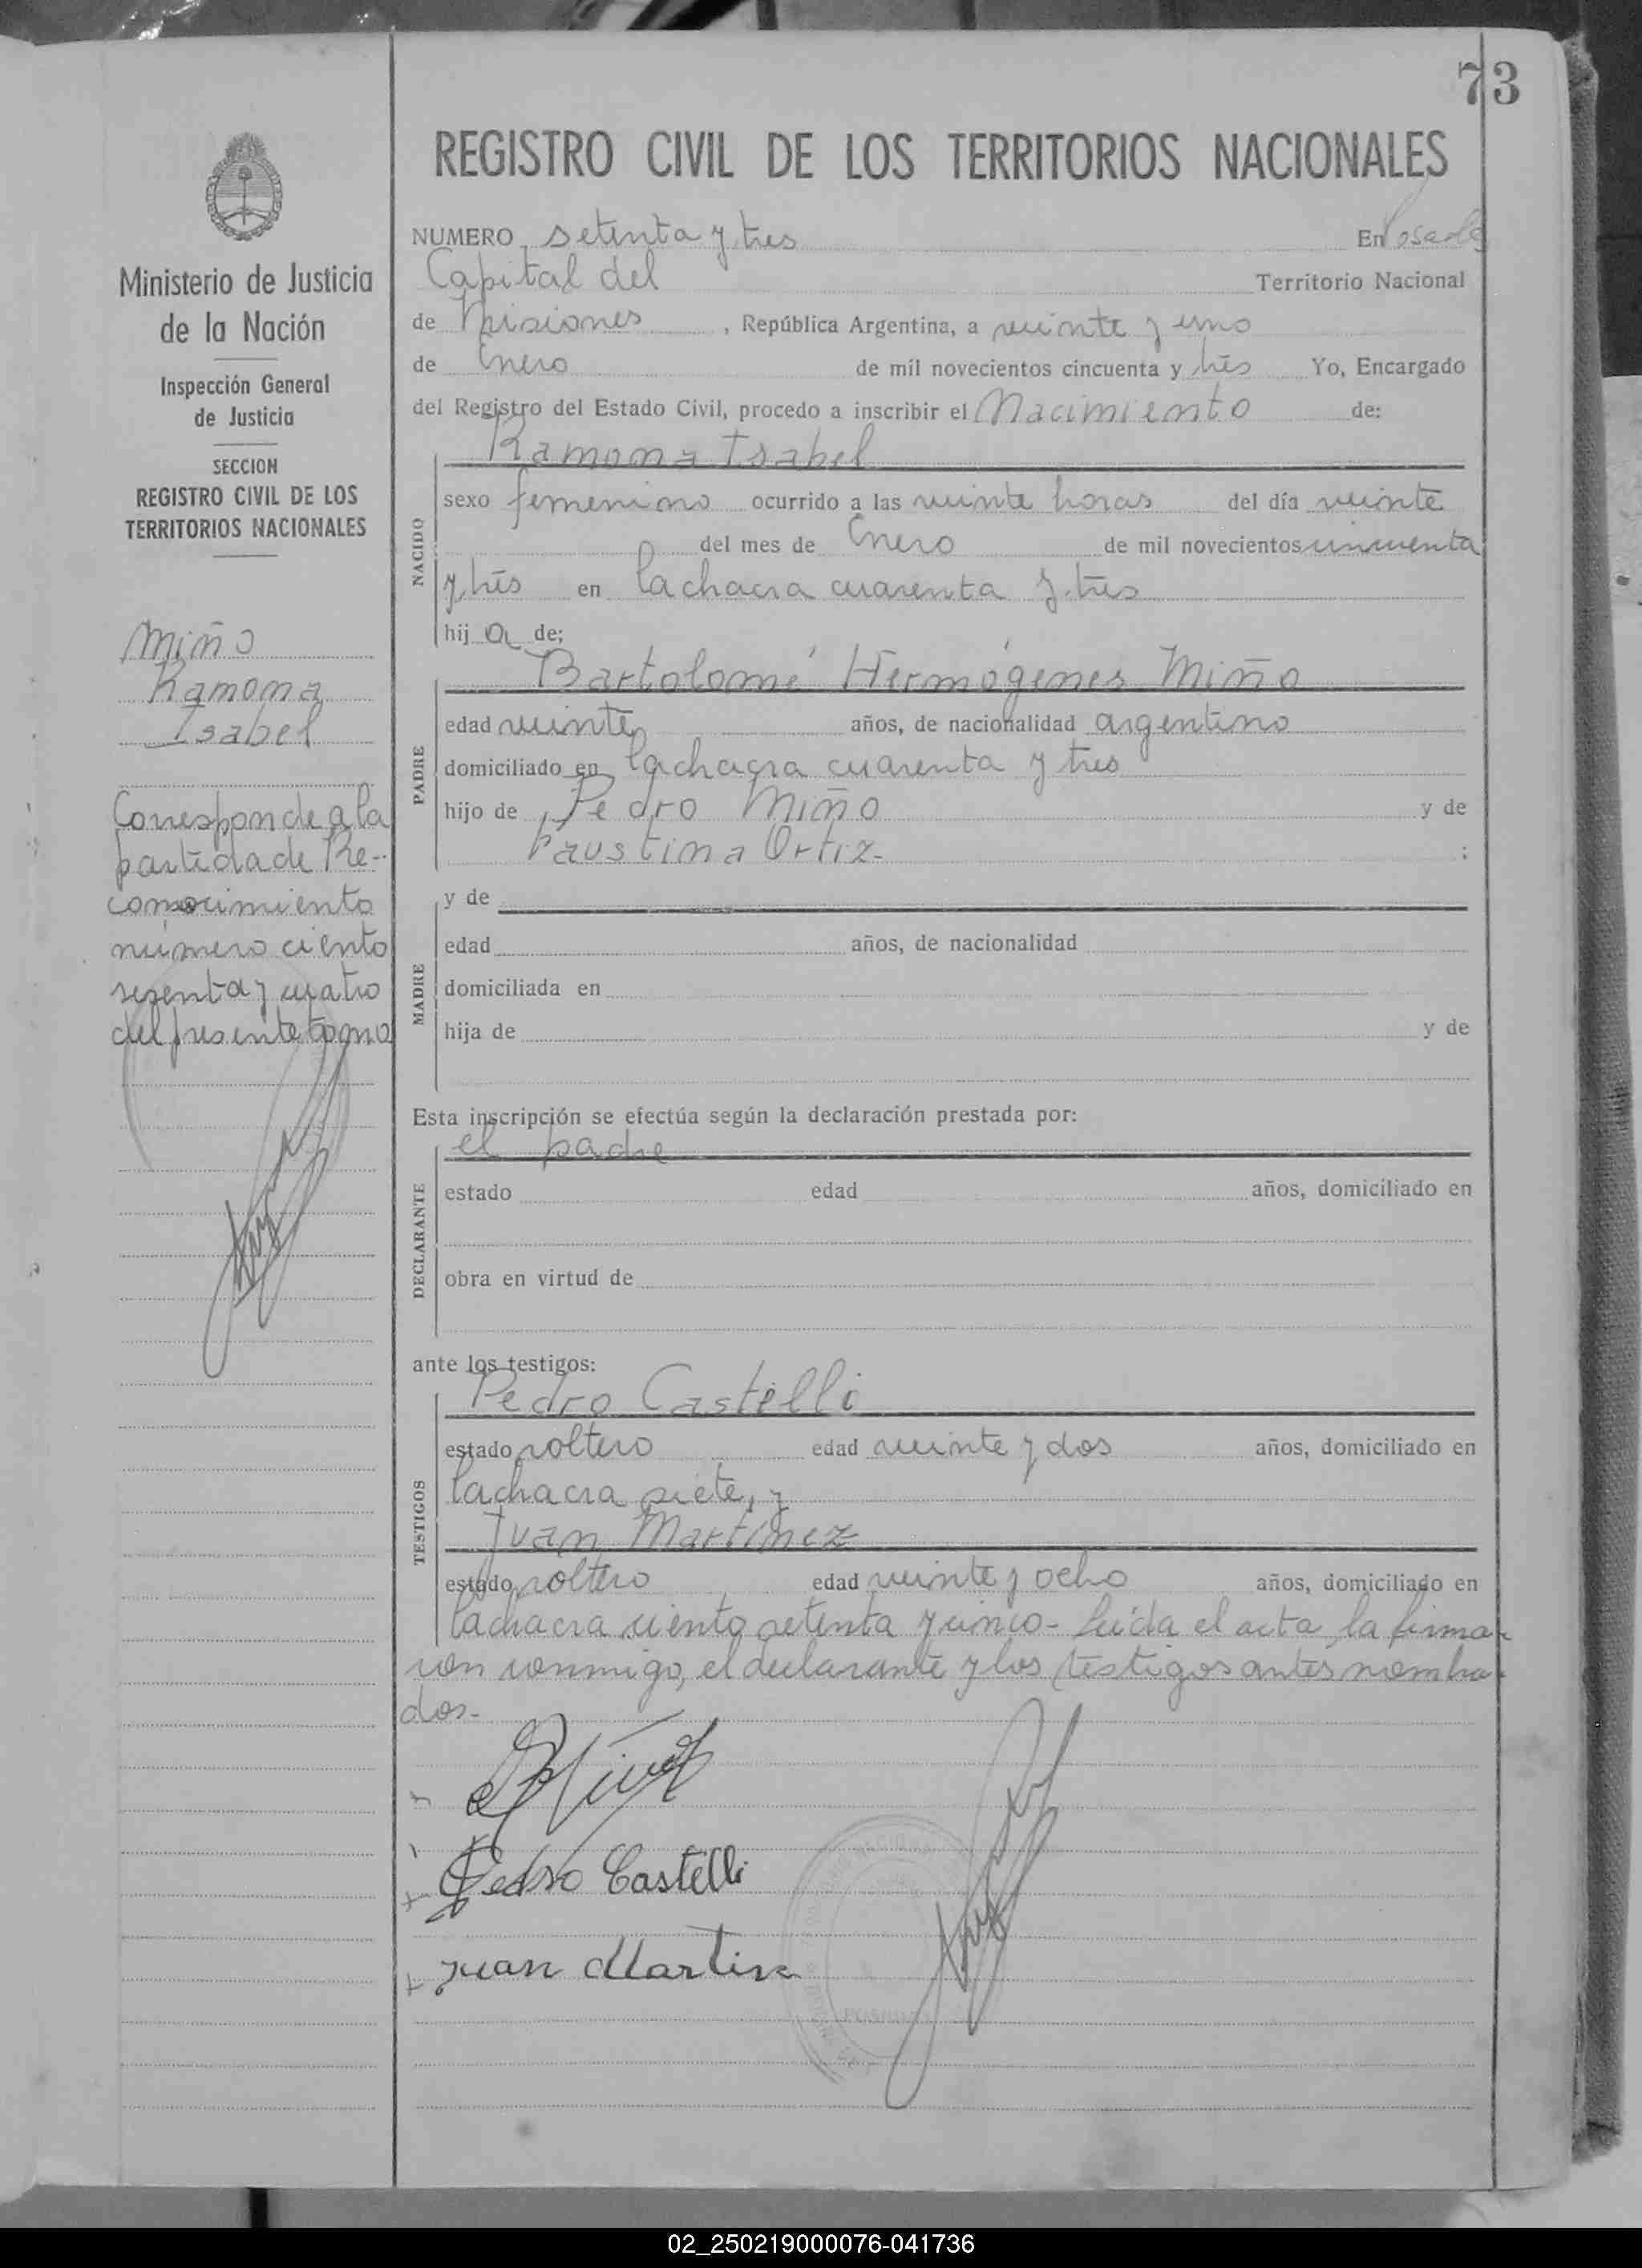 73
REGISTRO CIVIL DE LOS TERRITORIOS NACIONALES
Ministerio de Justicia
de la Nación
Inspección General
de Justicia
SECCION
REGISTRO CIVIL DE LOS
TERRITORIOS NACIONALES
Miño
Ramona
Isabel
Corresponde a la
partida de Re-
conocimiento
número ciento
sesenta y cuatro
del presente tomo
NUMERO setenta y tres En Posadas
Capital del Territorio Nacional
de Misiones, República Argentina, a veinte y uno
de Enero de mil novecientos cincuenta y trés Yo, Encargado
del Registro del Estado Civil, procedo a inscribir el Nacimiento de:
Ramona Isabel
NACIDO
sexo femenino ocurrido a las veinte horas del día veinte
del mes de Enero de mil novecientos cincuenta
y trés en la chacra cuarenta y tres
hija de;
Bartolomé Hermógenes Miño
PADRE
edad veinte años, de nacionalidad argentino
domiciliado en la chacra cuarenta y tres
hijo de Pedro Miño y de
Faustina Ortiz- ;
MADRE
y de
edad años, de nacionalidad
domiciliada en
hija de y de
Esta inscripción se efectúa según la declaración prestada por:
el padre
DECLARANTE
estado edad años, domiciliado en
obra en virtud de
ante los testigos:
Pedro Castelli
TESTIGOS
estado soltero edad veinte y dos años, domiciliado en
la chacra siete, y
Juan Martínez
estado soltero edad veinte y ocho años, domiciliado en
la chacra ciento setenta y cinco- Leída el acta, la firma-
ron conmigo, el declarante y los testigos antes nombra-
dos-
Pedro Castelli
Juan Martine
02_250219000076-041736